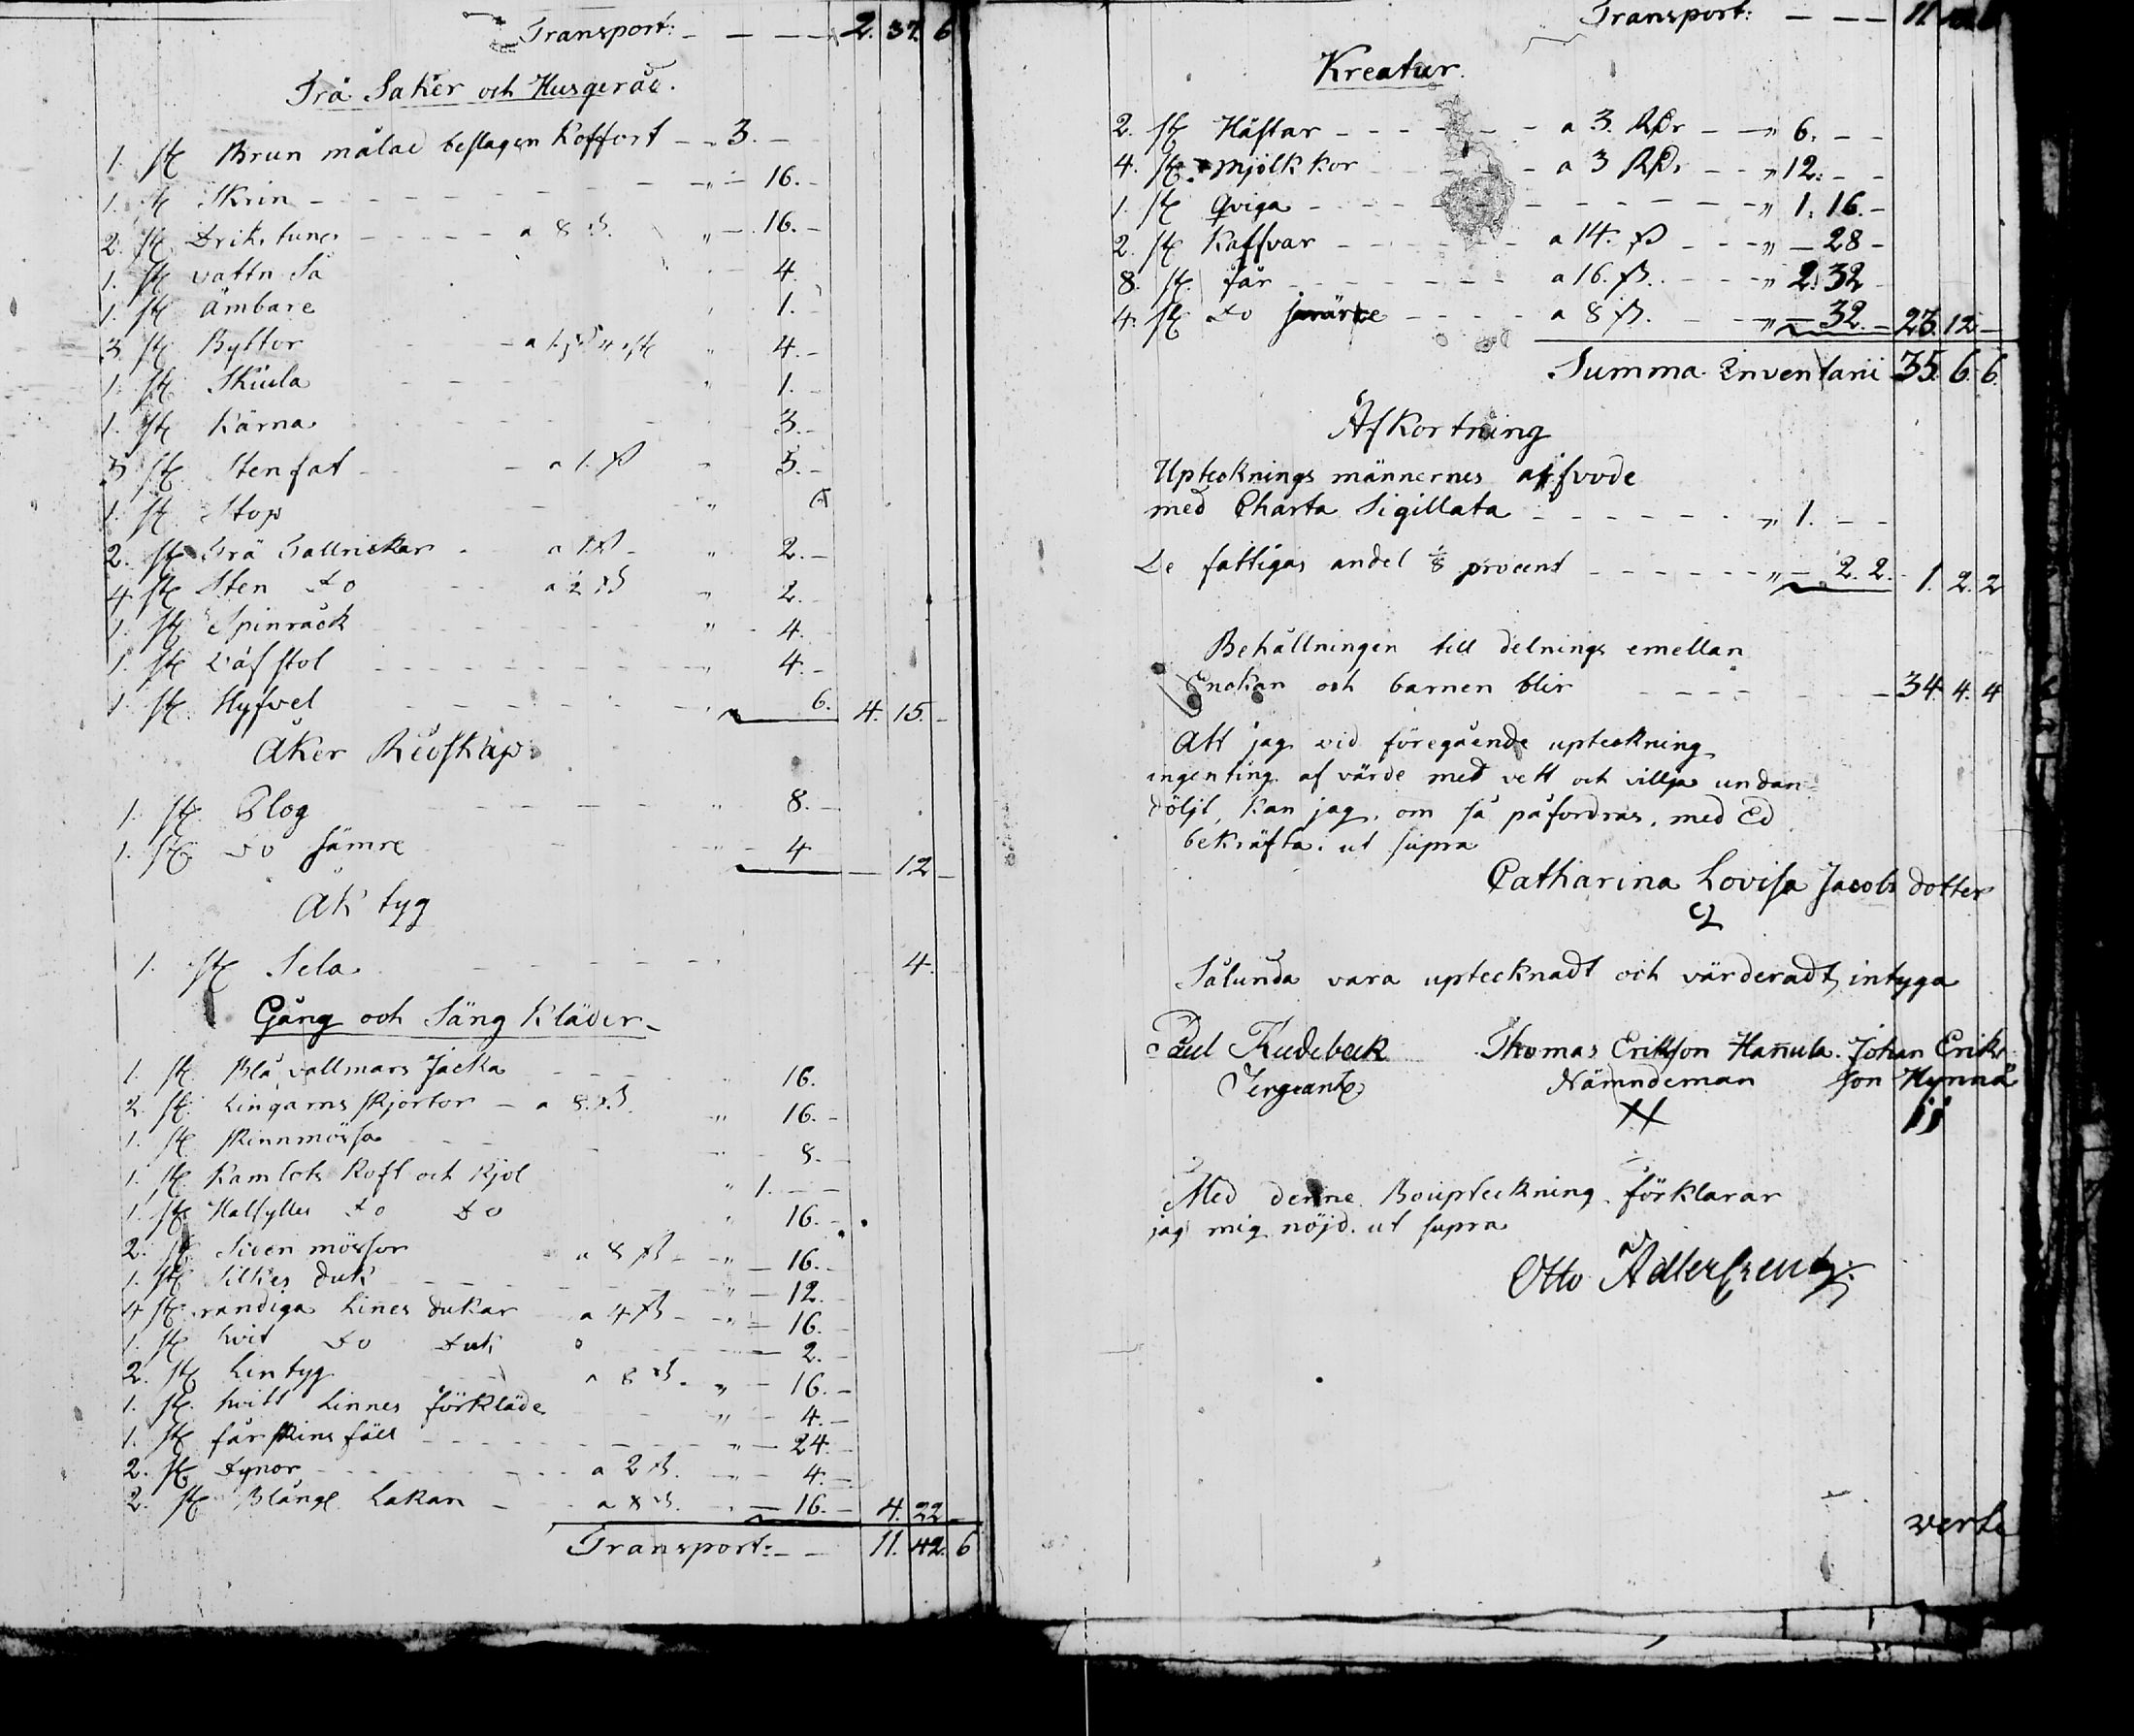 Transport: - - - 2. 37. 6
Trä Saker och Husgeråd.
1. st Brun målad beslagen Koffort - " 3. -
1. st Skrin - - - - " - 16. -
2. st Drikstunor - - - a 8 ß. " - 16. -
1. st vattn Så 4.
1. st Ämbare 1.
3. st Byttor 4. -
1. st Skiula " 1. -
1. st Kärna 3. -
3 st Stenfat - a 1. ß " 3. -
1. st Stop " 6
2. st Trä Tallrickar - a 1 ß - " 2. -
4 st Sten Do a ½ ß " 2. -
1. st Spinråck " - 4. -
1. st Väfstol " 4. -
1. st Hyfvel " 6. 4. 15. -
Åker Redskap.
1. st Plog " 8. -
1. st Do sämre " - 4 - 12 -
Åk tyg
1. st Sela 4.
Gång och Säng Kläder -
1. st Blå vallmars Jacka " 16.
2. st Lingarns skjortor - a 8. ß. " 16. -
1. st skinnmössa " - 8. -
1. st Kamlots Koft och Kjol " 1. - -
1. st Halfylles Do Do " 16. -
2. st Siden mössor a 8 ß - " - 16. -
1. st Silkes duk - - - " - 12. -
4 st randiga Lines dukar a 4 ß - " - 16. -
1. st hvit Do Duk - 2. -
2. st Lintyg a 8 ß. " - 16. -
1. st hvitt Linnes förkläde " - 4. -
1. st fårskins fäll - - - " - 24. -
2. st Dynor - - - a 2 ß. " - 4. -
2. st Blångl Lakan - a 8 ß. " - 16. - 4. 22 -
Transport: - - 11. 42. 6
Transport: - - - 11
Kreatur.
2. st Hästar - - - a 3. RDr - " 6. - -
4. st mjölk kor - a 3 RDr - - " 12. - -
1. st Qviga - - - " 1. 16. -
2. st Kalfvar - - - a 14. ß - - " - 28 -
8. st får - - - a 16. ß. - - " 2. 32 -
4. st Do smärre - - - a 8 ß. - " - 32. - 23. 12. -
Summa Inventarii 35. 6. 6.
Afkortning
Uptecknings männernes arfvode
med Charta Sigillata - - - " 1. - -
De fattigas andel ⅛ procent - - - " - 2. 2. - 1. 2. 2
Behållningen till delnings emellan
Enckan och barnen blir - - - 34. 4. 4
Att jag vid föregående upteckning
ingenting af värde med vett och villja undan=
döljt, kan jag, om så påfordras, med Ed
bekräfta. ut supra
Catharina Lovisa Jacobs dotter
Sålunda vara uptecknadt och värderadt, intyga
Paul Kudebeck Thomas Erikson Hannula. Johan Eriks
Sergeant Nämndeman son Hynnä
Med denne Boupteckning förklarar
jag mig nöjd. ut supra
Otto Adlercreutz.
verte